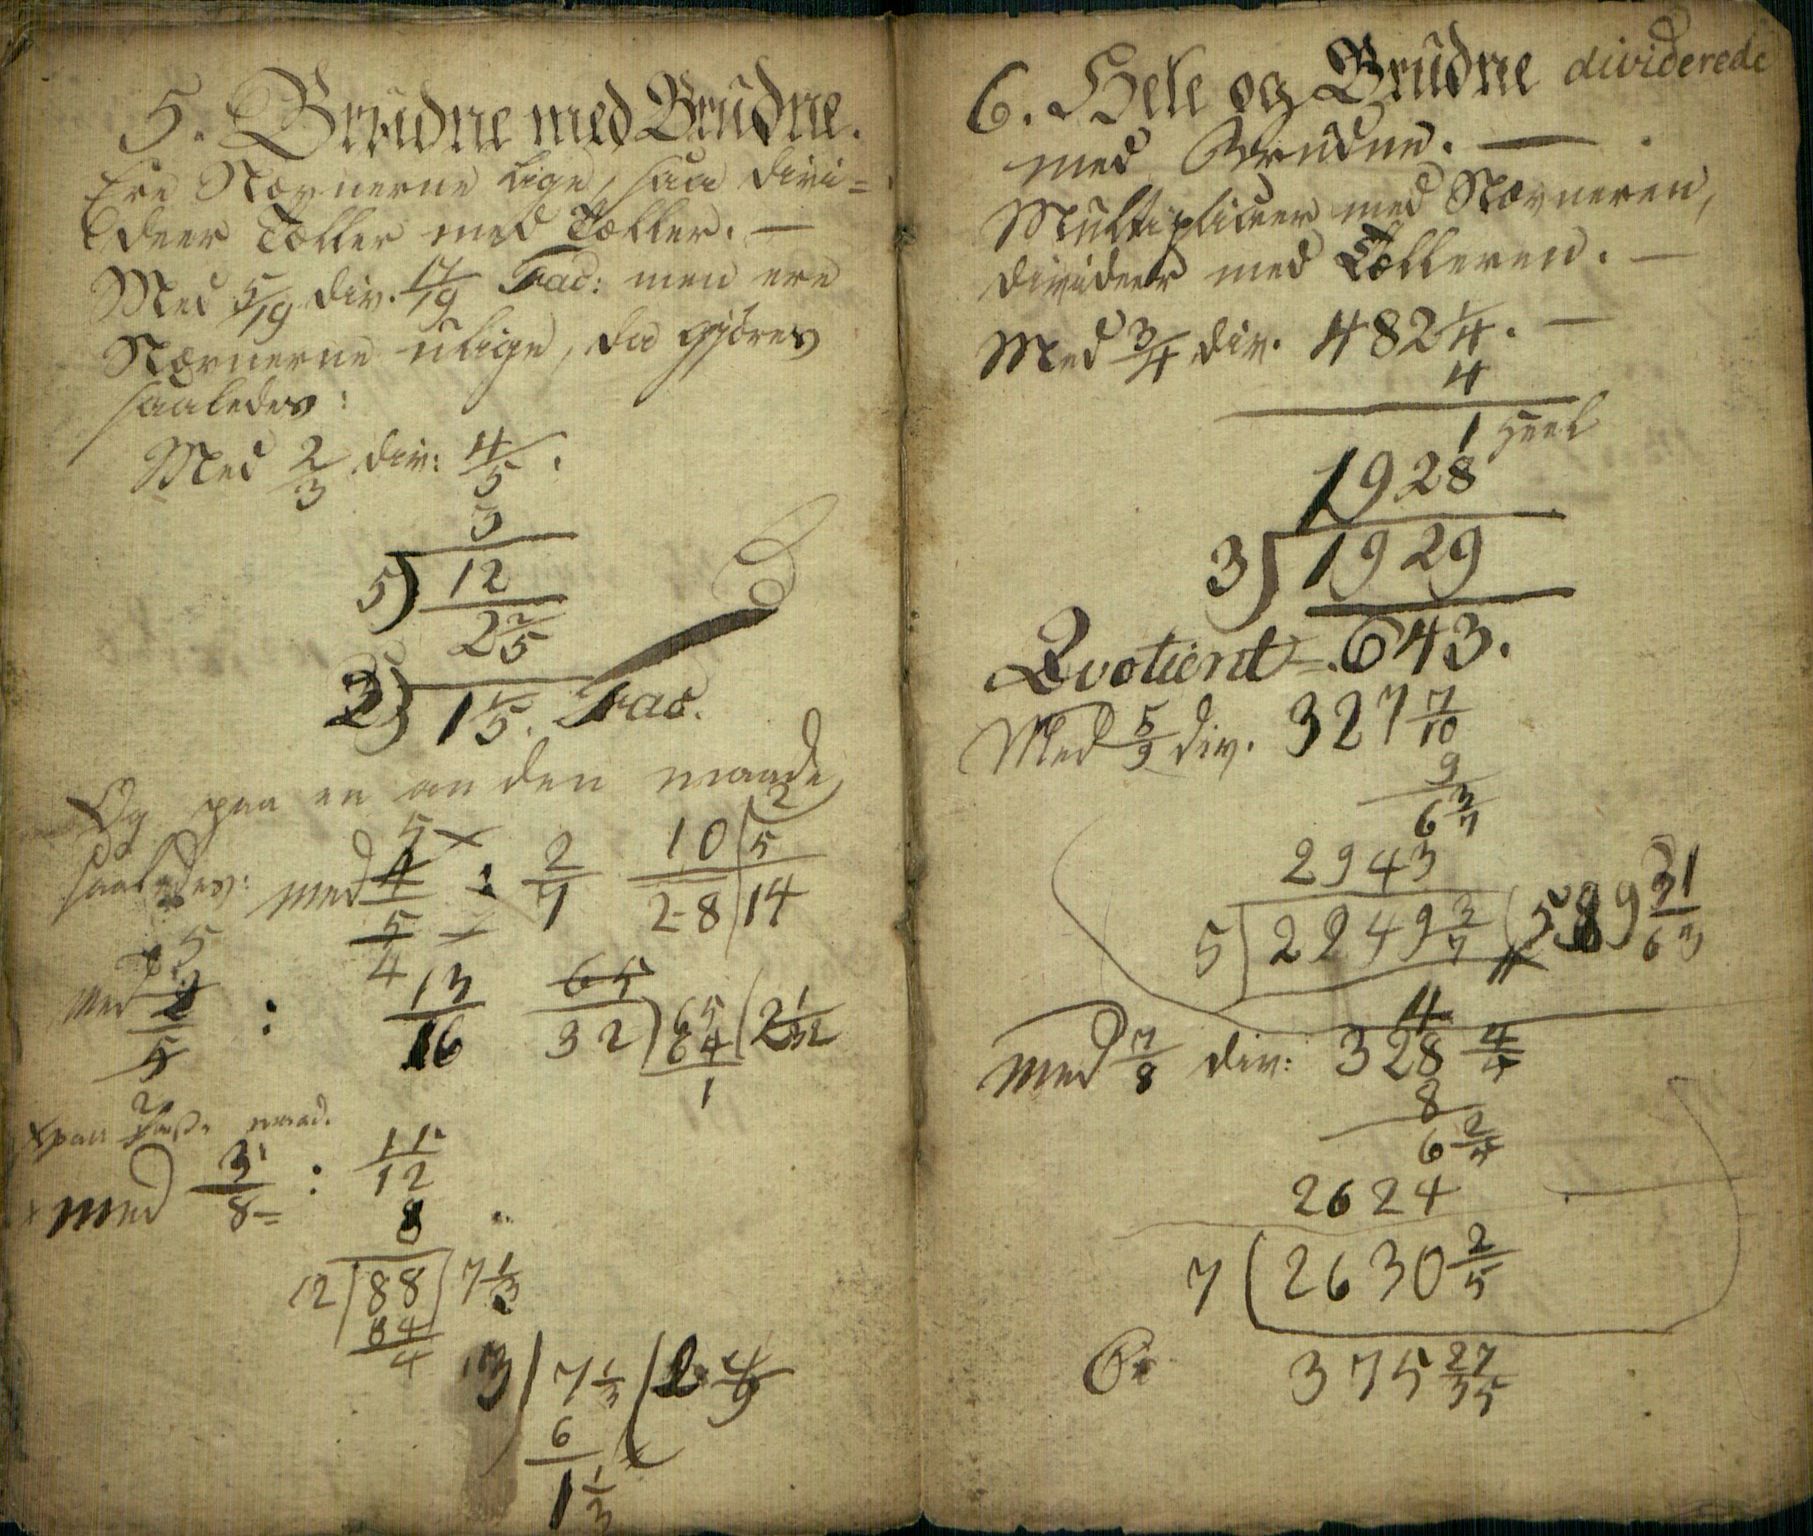 5. Brudne med Brudne.
Ere Nævnerne lige, saa divi=
deer Tæller med Tæller. —
Med 5/19 div. 17/19 Fac: men ere
Nævnerne ulige, da gjøres
saaledes:
Med 2/3 div: 4/5.
3
5) 12
2 2/5
2) 1 1/5. Fac.
Og paa en anden maade
saaledes: med 4/5 : 2/7 10/28 | 5/14
5
4
med 2/5 : 13/16 65/32 ) 65 ( 2 1/32
64
1
5
2
med 3/8 : 11/12
8
12 | 88 | 7 1/3
84
4
3 | 7 1/3 ( 2 4/9
6
1 1/3
6. Hele og Brudne dividerede
med Brudne. —
Multipliceer med Nævneren,
divideer med Tælleren. —
Med 3/4 div. 482 1/4. —
4
1 Heel
1928
3) 1929
Qvotient = 643.
Med 5/9 div. 327 7/10
9
6 3/7
2943
5 | 2949 3/7 ( 589 31/63
med 7/8 div: 328 4/5
8
6 2/5
2624
7 ( 2630 2/5
375 27/35